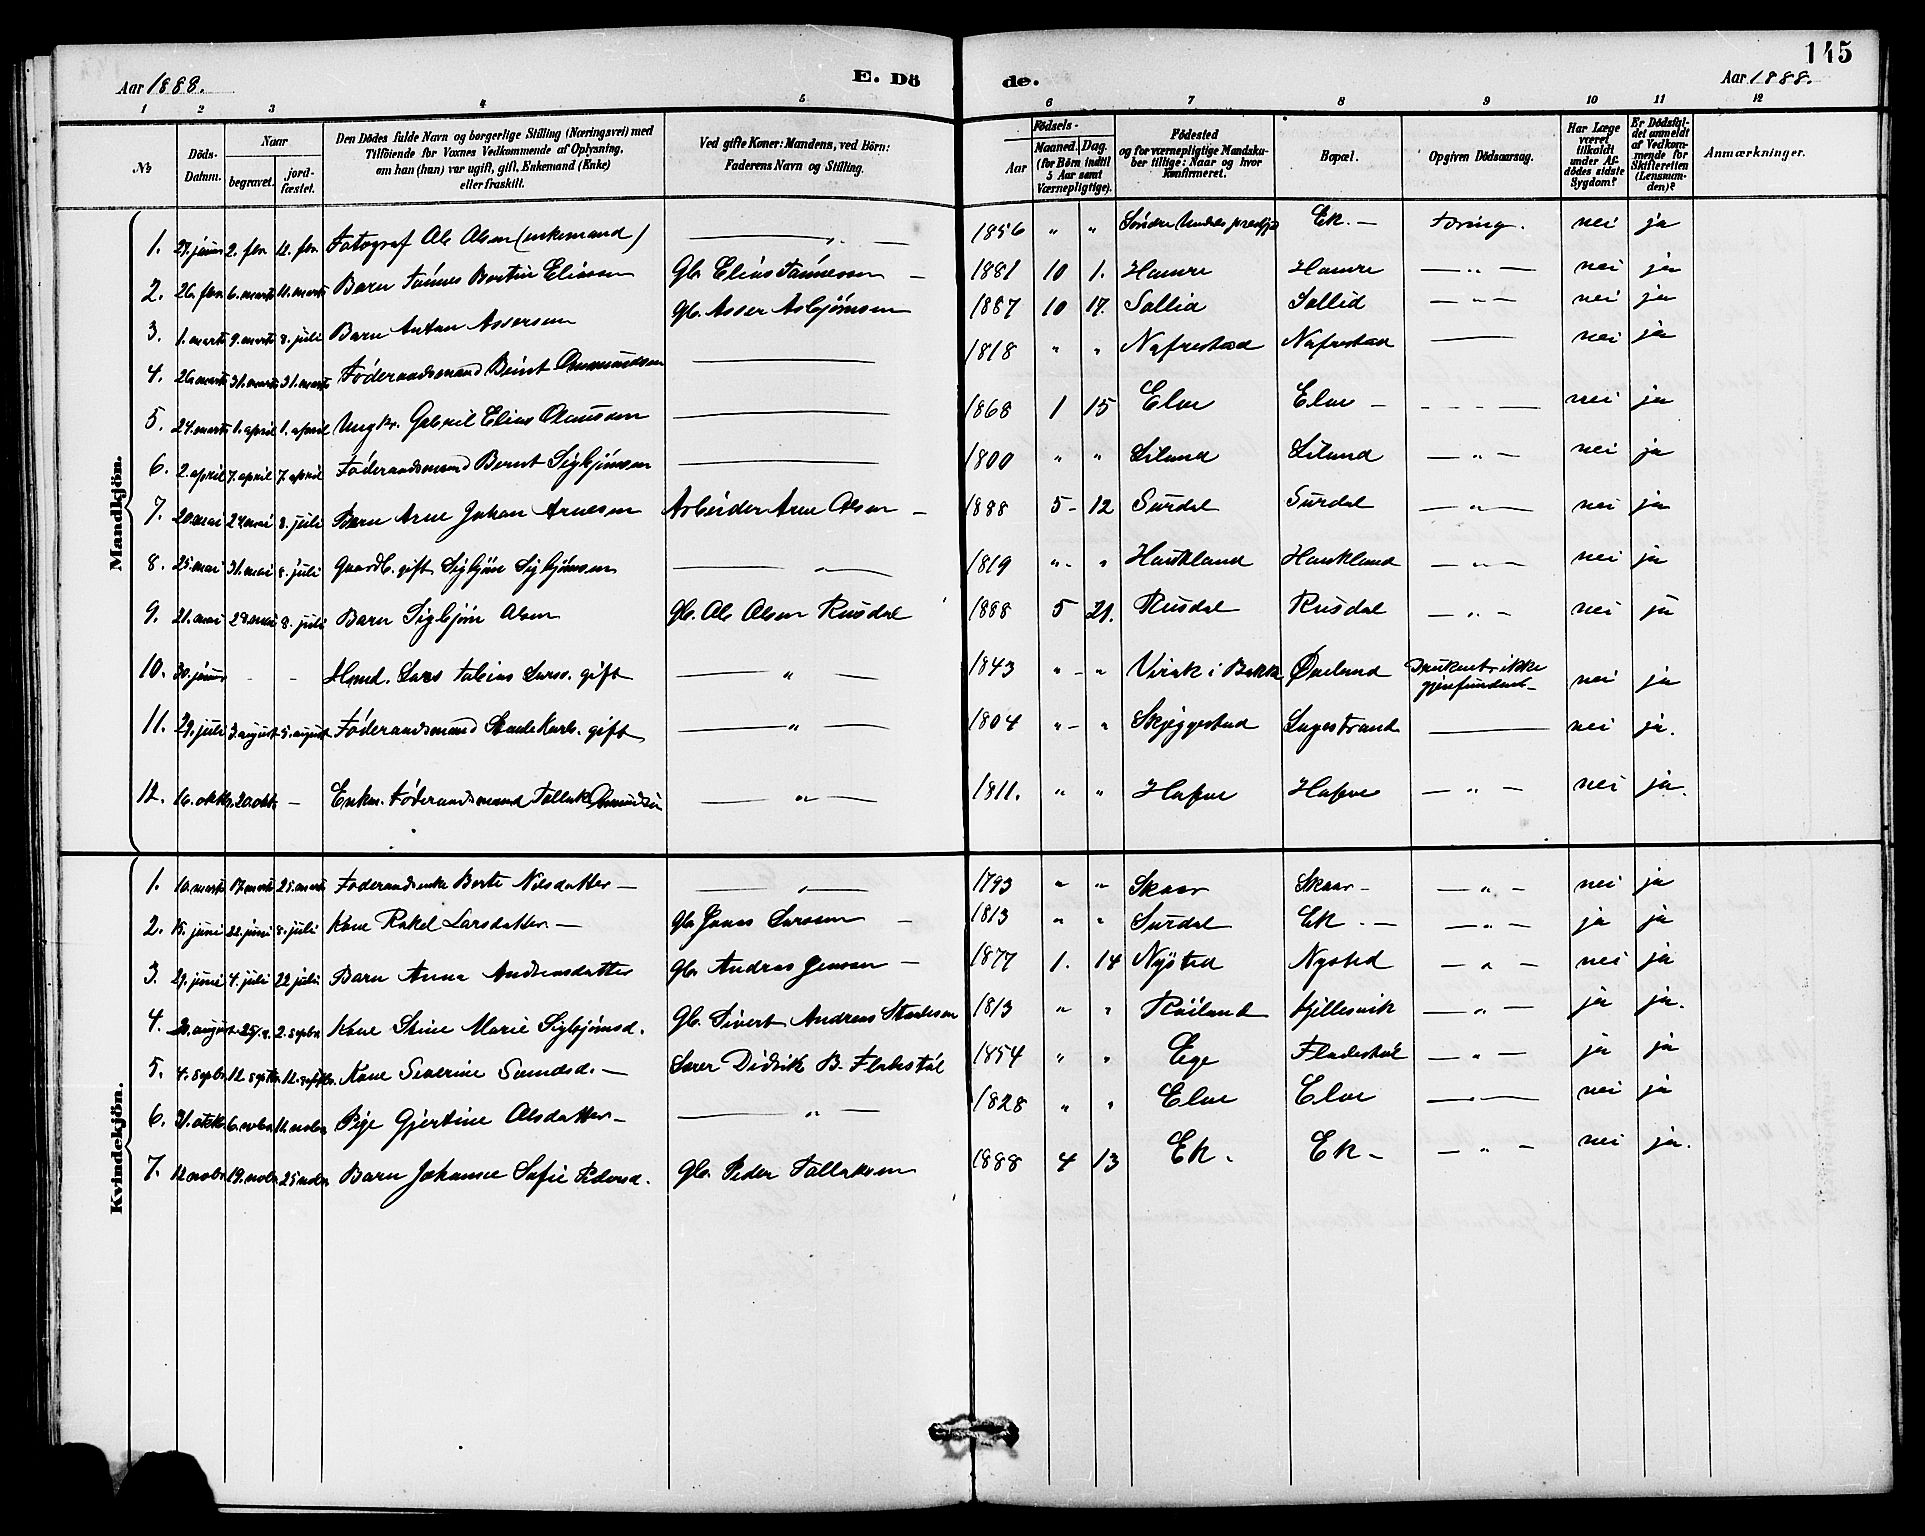 145
Aar 1888. E. Dö de. Aar 1888.
1 2 3 4 5 6 7 8 9 10 11 12
№ Döds-Datum. Naar begravet. jord-fæstet. Den Dödes fulde Navn og borgerlige Stilling (Næringsvei) med Tilföiende for Voxnes Vedkommende af Oplysning, om han (hun) var ugift, gift, Enkemand (Enke) eller fraskilt. Ved gifte Koner: Mandens, ved Börn: Faderens Navn og Stilling. Födsels- Aar Maaned. Dag. (for Börn indtil 5 Aar samt Værnepligtige). Födested og for værnepligtige Mandsku-ber tillige: Naar og hvor konfirmeret. Bopæl. Opgiven Dödsaarsag. Har Læge været tilkaldt under Af-dödes sidste Sygdom? Er Dödsfal-det anmeldt af Vedkom-mende for Skifteretten (Lensman-den)? Anmærkninger.
Mandkjön.
1. 27. januar 2. fbr. 12. fbr. Fotograf Ole Olsen (enkemand) — " — 1856 " " Söndre Undals præstgj. Ek. — Tæring. nei ja
2. 26. fbr. 6. marts 11. marts Barn Tönnes Bertin Eliassen Gb. Elias Tönnessen — 1881 10 1. Hamre Hamre — " — nei ja
3. 1. marts 9. marts 8. juli Barn Anton Assersen Gb. Asser Asbjörnsen 1887 10 17. Sollid Sollid — " — nei ja
4. 26. marts 31. marts 31. marts Föderaadsmand Beint Omundsen — 1818 " " Nafrestad Nafrestad — nei ja
5. 24. marts 1. april 1. april Ungkr. Gabriel Elias Olaussen — 1868 1 15 Elve Elve — - - - — nei ja
6. 2. april 7. april 7. april Föderaadsmand Bernt Sigbjörnsen — 1800 " " Liland Liland — " — nei ja
7. 20. mai 24. mai 8. juli Barn Arne Johan Arnesen Arbeider Arne Olsen — 1888 5 - 12 Surdal Surdal — " — nei ja
8. 25. mai 31. mai 8. juli Gaardb. gift Sigbjörn Sigbjörnsen — " — 1819 " - " Haukland Haukland — " — nei ja
9. 21. mai 28. mai 8. juli Barn Sigbjörn Olsen Gb. Ole Olsen Rusdal 1888 5 21. Rusdal Rusdal — " — nei ja
10. 30. januar - - Hmd. Lars Tobias Larss. gift — " — 1843 " - " Virak i Bakke Öveland Druknet, ikke gjenfundet — nei ja
11. 29. juli 3. august 5. august Föderaadsmand Karls. gift — " — 1804 " - " Skjeggestad Lagestrand — nei ja.
12. 16. oktbr. 20. oktbr. — Enkm. Föderaadsmand Tollak Omundsen — " — 1811. " " Hafve Hafve — " — nei ja.
Kvindekjön.
1. 10. marts 17. marts 25. marts Föderaadsenke Berte Nilsdatter — — " — 1793 " " Skaar Skaar — — " - nei ja
2. 15. juni 22. juni 8. juli Kone Rakel Larsdatter — Gb. Jonas Larssen — 1813 " " Surdal Ek. — — " — ja ja
3. 27. juni 4. juli 22 juli. Barn Anna Andreasdatter Gb. Andreas Jensen — 1877 1. 14 Nysted Nysted — " — nei ja
4. 20. august 25/8. 2. sepbr. Kone Stine Marie Sigbjörnsd. Gb. Sivert Andreas 1813 " " Röiland Kjellesvik — " — ja ja.
5. 4. sepbr. 12. septbr. 12. septbr. Kone Severine Svendsd. — Didrik B. Fladestöl 1854 " " Ege Fladestöl — " — ja ja
6. 31. oktbr. 6. novbr. 11. novbr. Pige Gjertine Olsdatter — — " — 1828 " " Elve Elve — " — nei ja
7. 12. novbr. 19. novbr. 25. novbr. Barn Johanne Sofie Pedersd. Gb. Peder Tollaksen 1888 4 13 Ek. Ek — — " — nei ja.